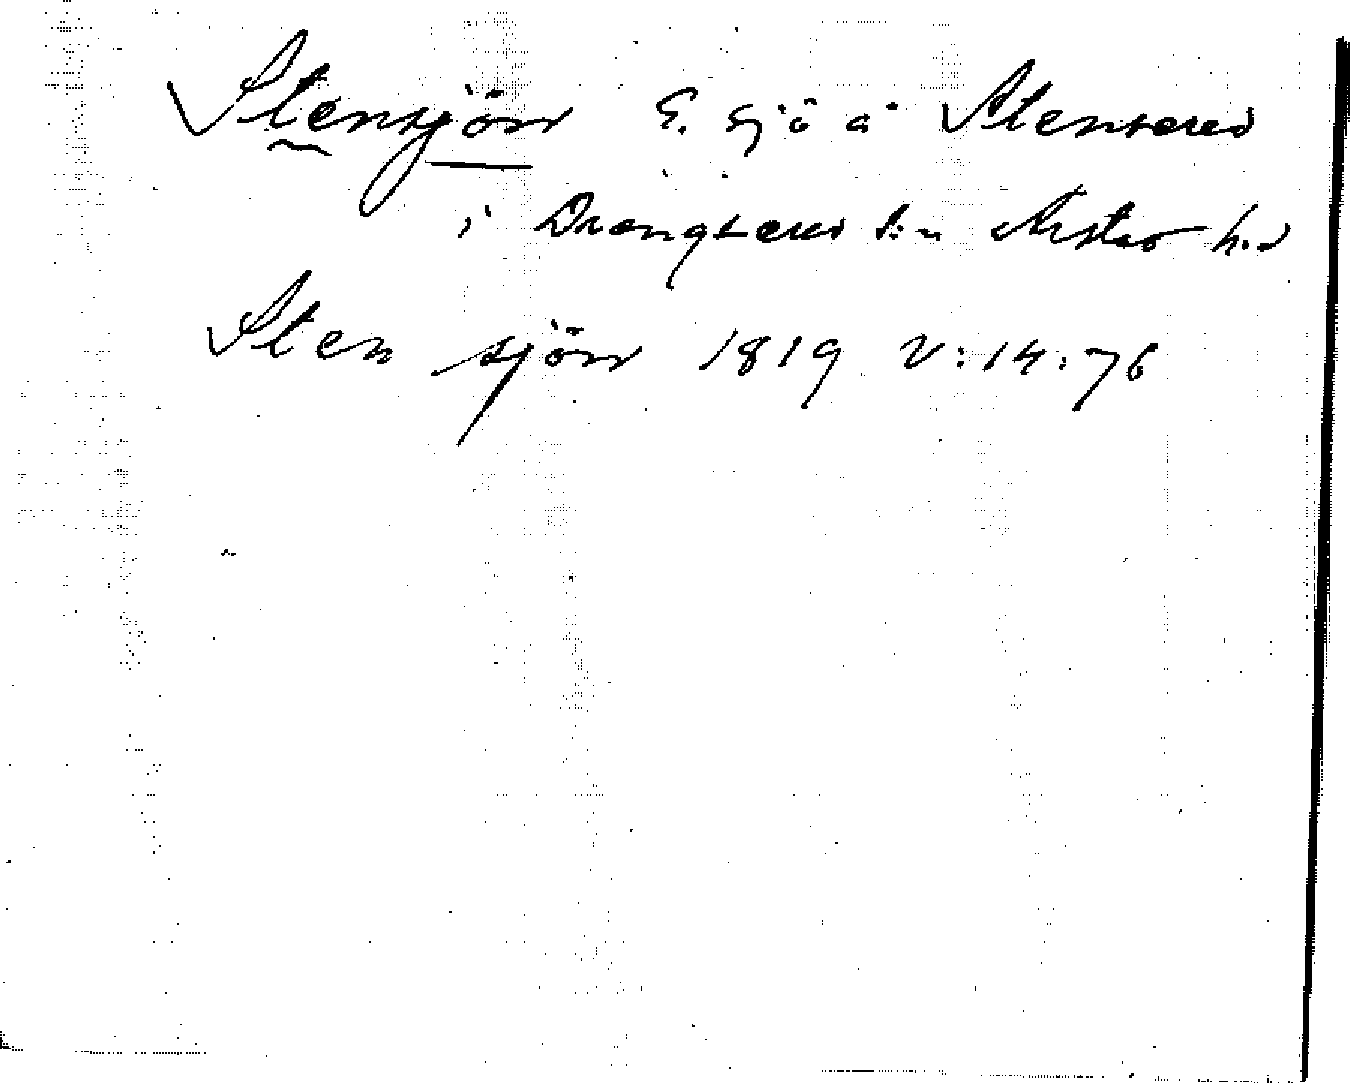 Stensjön E. sjö å Stensered
i Drängsered s:n Årstad h.d
Sten sjön 1819 V:14:76